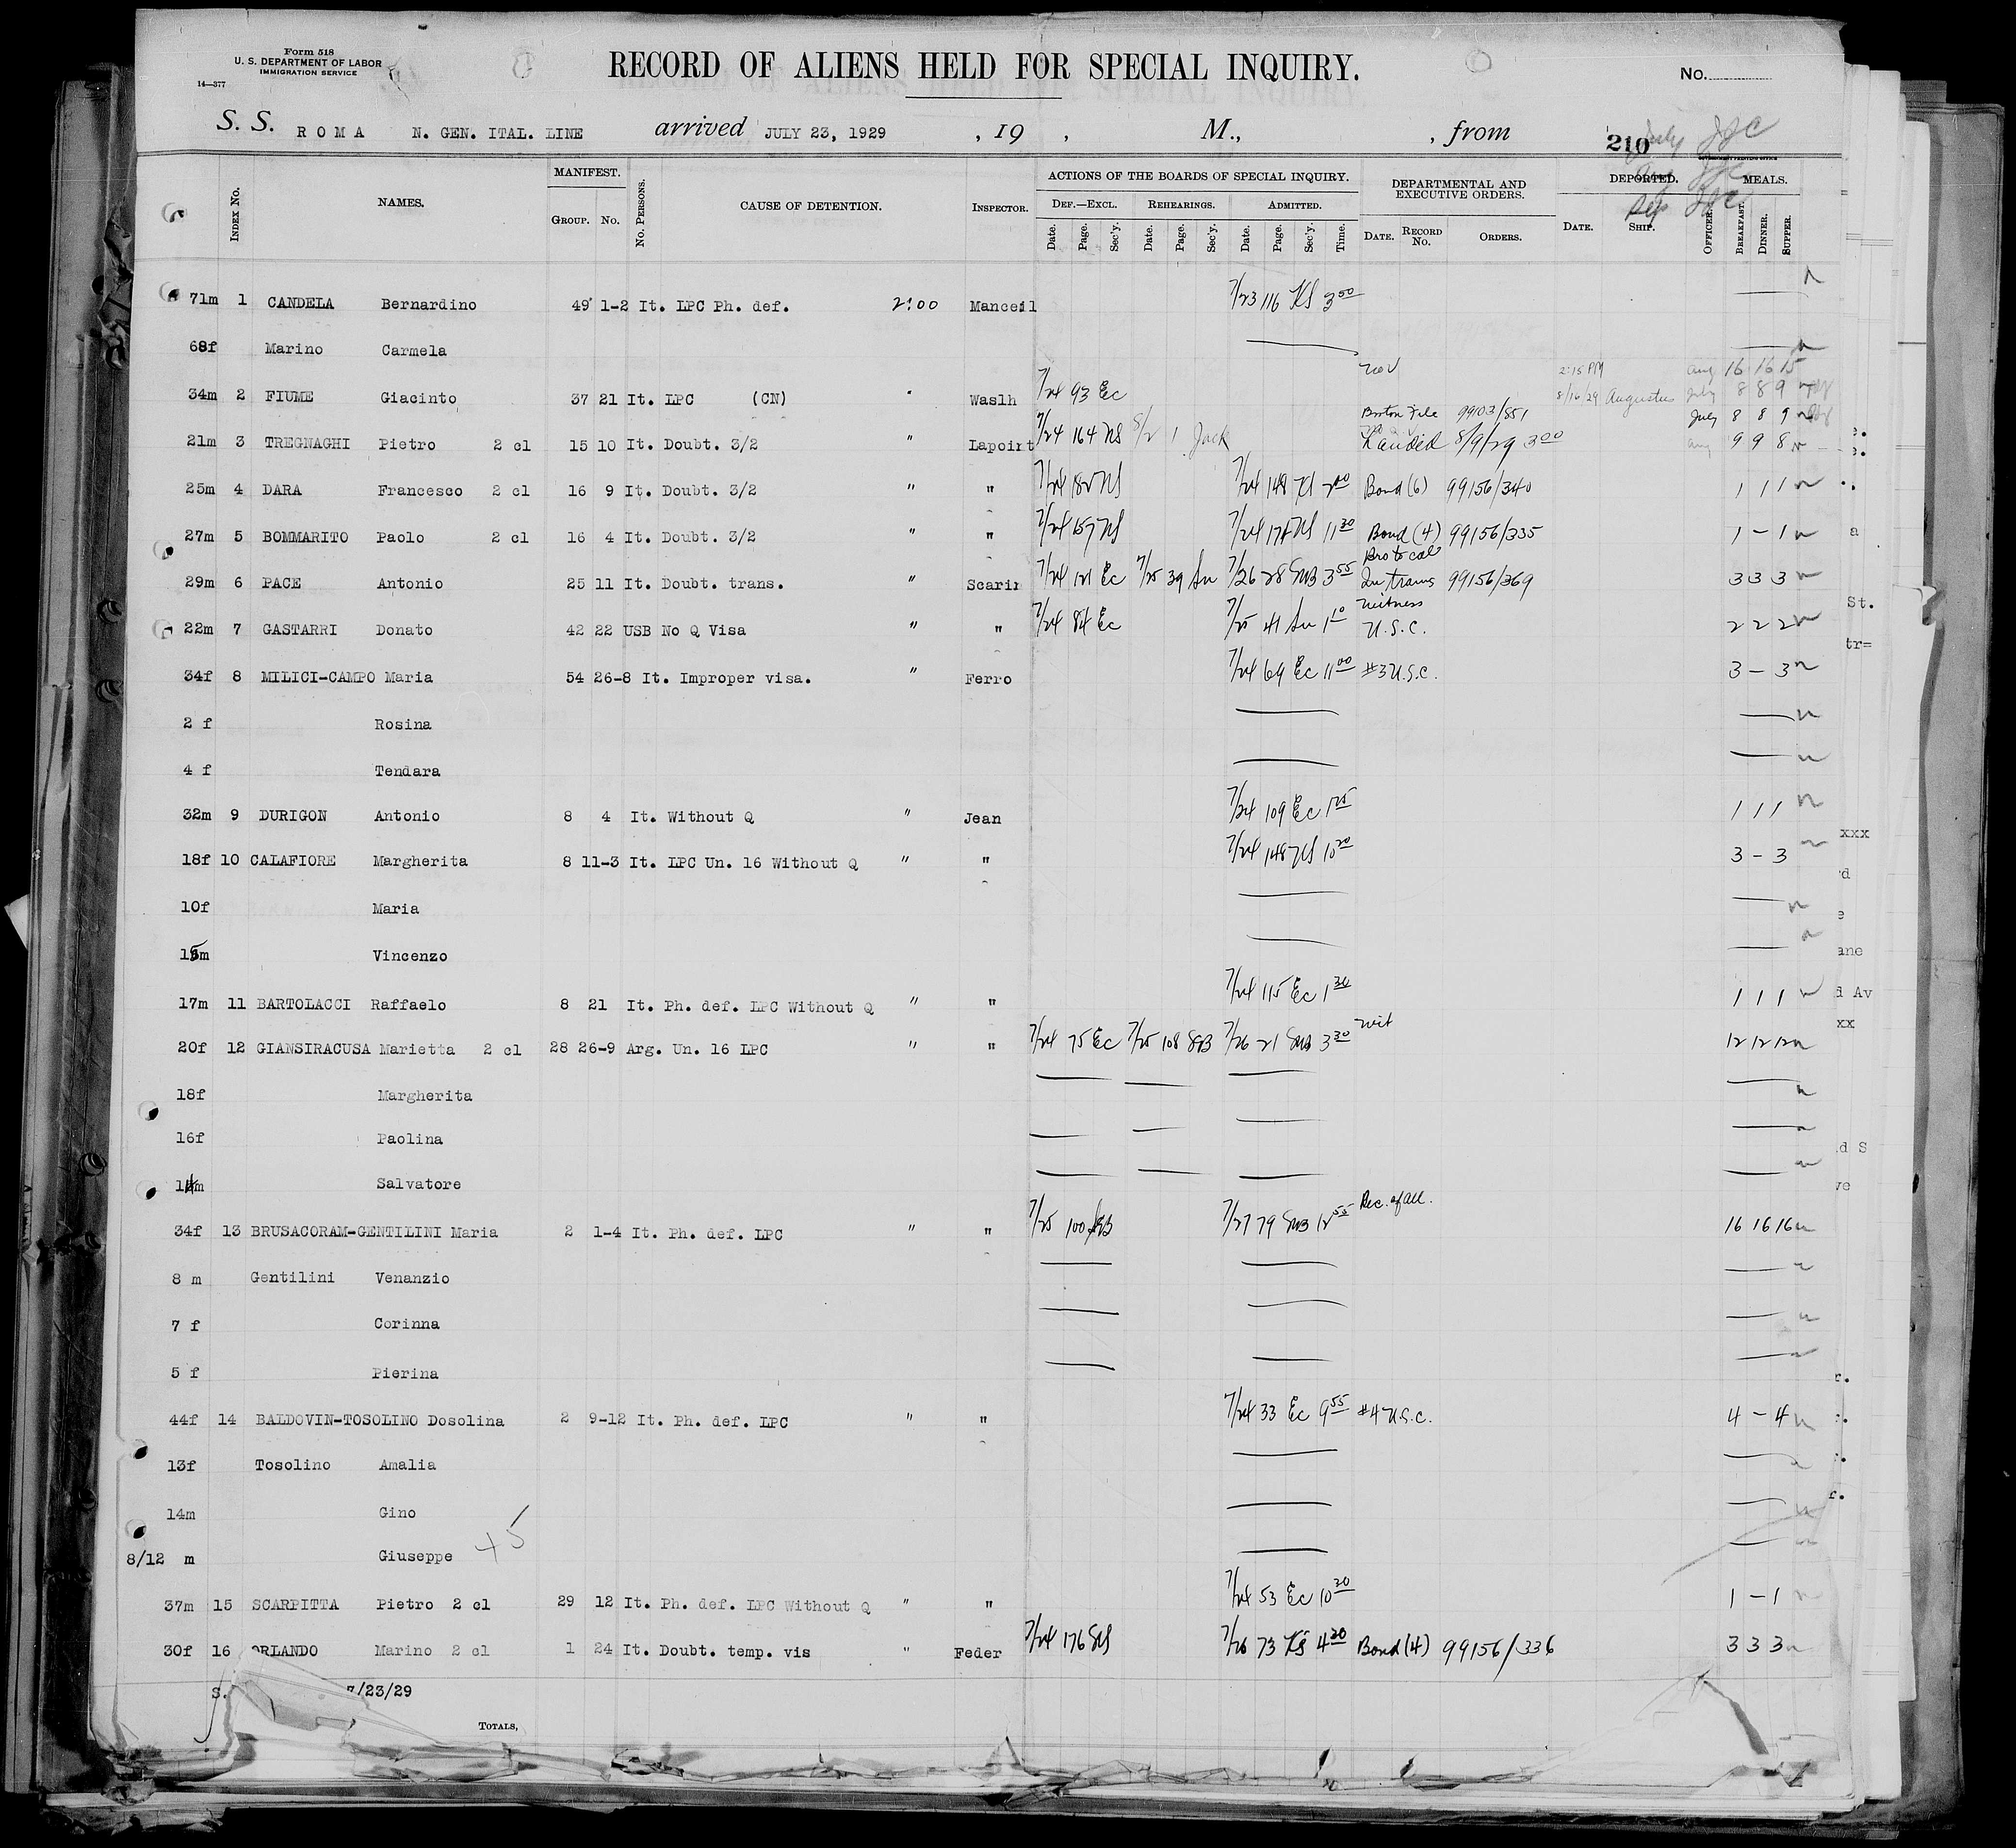 Form 518
U. S. DEPARTMENT OF LABOR
IMMIGRATION SERVICE
14—377
RECORD OF ALIENS HELD FOR SPECIAL INQUIRY.
No.
S. S. ROMA N. GEN. ITAL. LINE arrived JULY 23, 1929 , 19 , M., , from
210 July JJC
JJC
Sep JJC
Index No. NAMES. MANIFEST. GROUP. NO. No. PERSONS. CAUSE OF DETENTION. INSPECTOR. ACTIONS OF THE BOARDS OF SPECIAL INQUIRY. DEF.—EXCL. Date. Page. Sec'y. REHEARINGS. Date. Page. Sec'y. ADMITTED. Date. Page. Sec'y. Time. DEPARTMENTAL AND EXECUTIVE ORDERS. DATE. RECORD NO. ORDERS. DEPORTED. DATE. SHIP. OFFICER. MEALS. BREAKFAST. DINNER. SUPPER.
71m 1 CANDELA Bernardino 49 1-2 It. LPC Ph. def. 2:00 Manceil 7/23 116 KS 3 00
68f Marino Carmela
2:15 PM Aug 16 16 15
34m 2 FIUME Giacinto 37 21 It. LPC (CN) " Waslh 7/24 93 Ec 8/16/29 Augustus July 8 8 9
Boston File 99103/851 July 8 8 9
21m 3 TREGNAGHI Pietro 2 cl 15 10 It. Doubt. 3/2 " Lapoint 7/24 164 NS 8/2 1 Jack Landed 8/9/29 3 00 Aug 9 9 8
25m 4 DARA Francesco 2 cl 16 9 It. Doubt. 3/2 " " 7/24 182 NS 7/24 148 KS 2 00 Bond (6) 99156/340 1 1 1
27m 5 BOMMARITO Paolo 2 cl 16 4 It. Doubt. 3/2 " " 7/24 157 NS 7/24 178 NS 11 30 Bond (4) 99156/335 1 - 1
Bro to call
29m 6 PACE Antonio 25 11 It. Doubt. trans. " Scarin 7/24 121 Ec 7/25 39 Su 7/26 28 SMB 3 55 In trans 99156/369 3 3 3
Witness
22m 7 GASTARRI Donato 42 22 USB No Q Visa " " 7/24 84 Ec 7/25 41 Su 1 10 U.S.C. 2 2 2
34f 8 MILICI-CAMPO Maria 54 26-8 It. Improper visa. " Ferro 7/24 69 Ec 11 00 #3 U.S.C. 3 - 3
2 f Rosina
4 f Tendara
32m 9 DURIGON Antonio 8 4 It. Without Q " Jean 7/24 109 Ec 1 25 1 1 1
18f 10 CALAFIORE Margherita 8 11-3 It. LPC Un. 16 Without Q " " 7/24 148 NS 10 20 3 - 3
10f Maria
15m Vincenzo
17m 11 BARTOLACCI Raffaelo 8 21 It. Ph. def. LPC Without Q " " 7/24 115 Ec 1 30 1 1 1
20f 12 GIANSIRACUSA Marietta 2 cl 28 26-9 Arg. Un. 16 LPC " " 7/24 75 Ec 7/25 108 SB 7/26 21 SMB 3 30 Wit 12 12 12
18f Margherita
16f Paolina
14m Salvatore
34f 13 BRUSACORAM-GENTILINI Maria 2 1-4 It. Ph. def. LPC " " 7/25 100 7/27 79 SMB 12 55 Rec. of all. 16 16 16
8 m Gentilini Venanzio
7 f Corinna
5 f Pierina
44f 14 BALDOVIN-TOSOLINO Dosolina 2 9-12 It. Ph. def. LPC " " 7/24 33 Ec 9 55 #4 U.S.C. 4 - 4
13f Tosolino Amalia
14m Gino
8/12 m Giuseppe 45
37m 15 SCARPITTA Pietro 2 cl 29 12 It. Ph. def. LPC Without Q " " 7/24 53 Ec 10 20 1 - 1
30f 16 ORLANDO Marino 2 cl 1 24 It. Doubt. temp. vis " Feder 7/24 176 7/26 73 KS 4 20 Bond (4) 99156/336 3 3 3
S. 7/23/29
TOTALS,